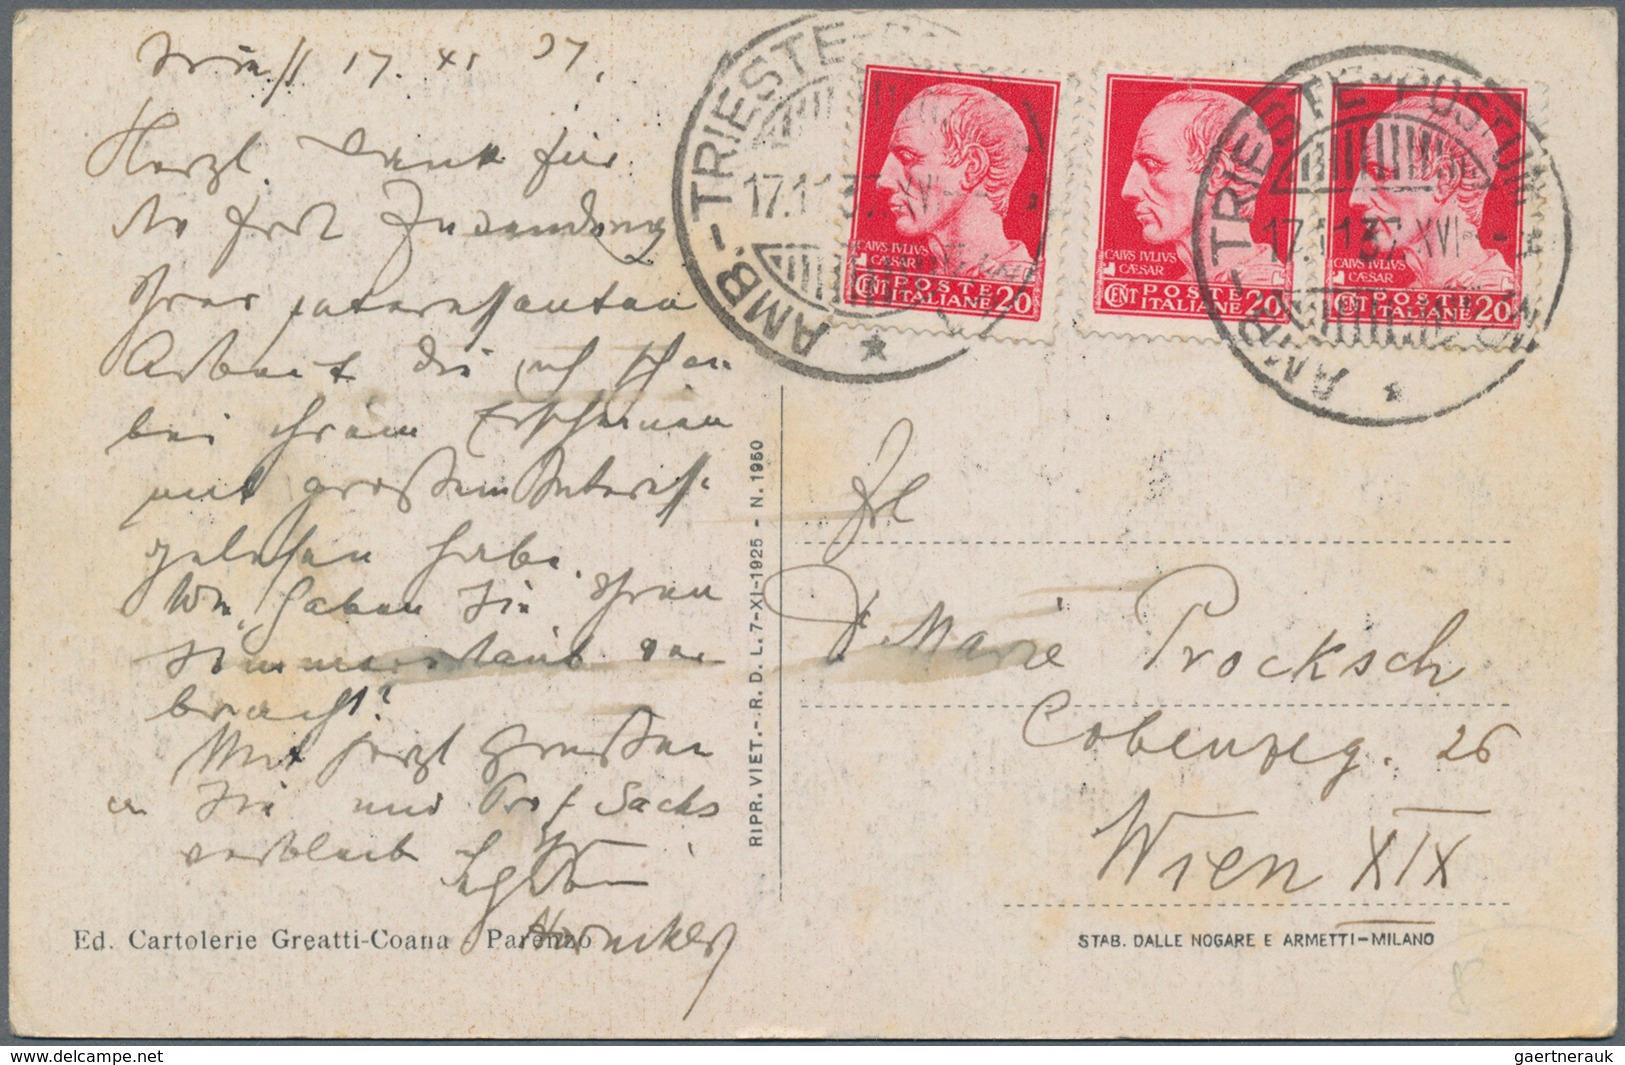 17. XI 37.
Herzl. Dank für
die frdl. Zusendung
Ihrer interessanten
Arbeit die ich schon
bei ihrem Erscheinen
mit großem Interesse
gelesen habe.
Wo haben Sie Ihren
Sommerurlaub ver
bracht?
Mit herzl Grüßen
an Sie und Prof Sachs
verbleib
Ed. Cartolerie Greatti-Coana Parenzo
RIPR. VIET.-.R. D. L. 7-XI-1925 - N. 1950
AMB.-TRIESTE-
17.11.37.XVI
CAIVS IVLIVS
CÆSAR
CENT POSTE
ITALIANE 20
CAIVS IVLIVS
CÆSAR
CENT POSTE
ITALIANE 20
CAIVS IVLIVS
CÆSAR
CENT POSTE
ITALIANE 20
AMB.-TRIESTE-POSTUMIA
17.11.37.XVI
Frl
Dr Marie Procksch
Cobenzlg. 26
Wien XIX
STAB. DALLE NOGARE E ARMETTI-MILANO
www.delcampe.net
gaertnerauk